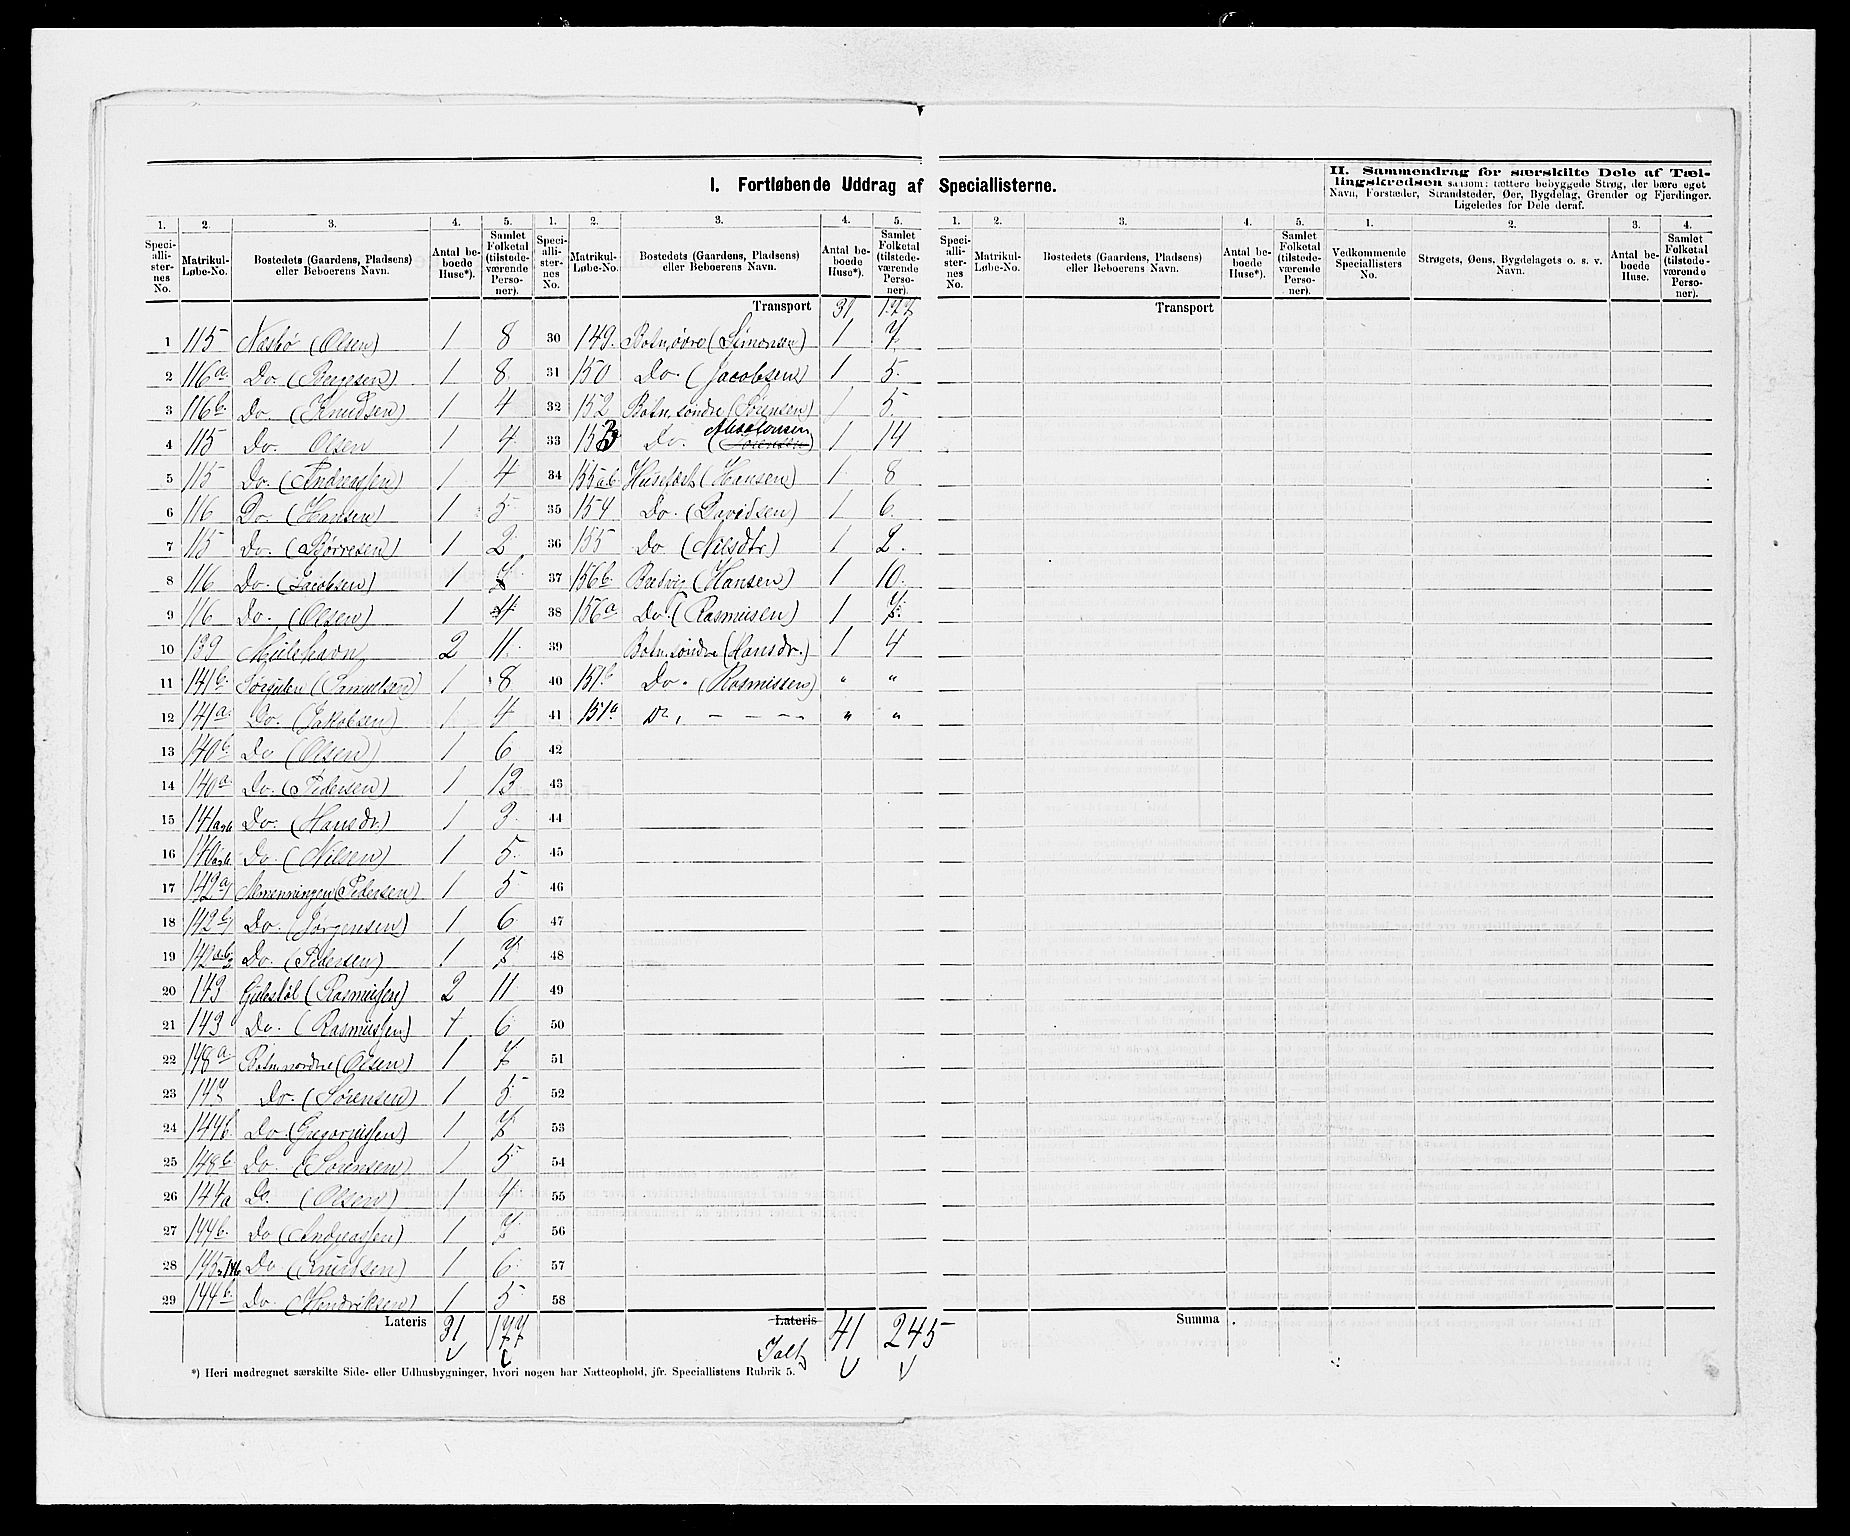 I. Fortløbende Uddrag af Speciallisterne.
II. Sammendrag for særskilte Dele af Tællingskredsen saasom: tættere bebyggede Strøg, der bære eget
Navn, Forstæder, Strandsteder, Øer, Bygdelag, Grender og Fjerdinger.
Ligeledes for Dele deraf.
1. 2. 3. 4. 5. 1. 2. 3. 4. 5. 1. 2. 3. 4. 5. 1. 2. 3. 4.
Speciallisternes No. Matrikul-Løbe-No. Bostedets (Gaardens, Pladsens) eller Beboerens Navn. Antal beboede Huse*). Samlet Folketal (tilstedeværende Personer).
Speciallisternes No. Matrikul-Løbe-No. Bostedets (Gaardens, Pladsens) eller Beboerens Navn. Antal beboede Huse*). Samlet Folketal (tilstedeværende Personer).
Speciallisternes No. Matrikul-Løbe-No. Bostedets (Gaardens, Pladsens) eller Beboerens Navn. Antal beboede Huse*). Samlet Folketal (tilstedeværende Personer).
Vedkommende Speciallisters No. Strøgets, Øens, Bygdelagets o. s. v. Navn. Antal beboede Huse. Samlet Folketal (tilstedeværende Personer).
Transport 31 177
Transport
1 115 Naskø (Olsen) 1 8
2 116a Do. (Børgesen) 1 8
3 116b Do. (Knudsen) 1 4
4 115 Do. Olsen 1 4
5 115 Do. (Andreassen) 1 4
6 116 Do. (Hansen) 1 5
7 115 Do. (Børresen) 1 2
8 116 Do. (Jacobsen) 1 7
9 116 Do. (Olsen) 1 4
10 139 Mulehavn 2 11
11 141b (Samuelsen) 1 8
12 141a Do. (Jakobsen) 1 4
13 140b Do (Olsen) 1 6
14 140a Do. (Pedersen) 1 13
15 141a&b Do. (Hansdr.) 1 3
16 140a&b Do. (Nilsen) 1 5
17 142a1 Almenningen (Pedersen) 1 5
18 142b1 Do. (Jørgensen) 1 6
19 142 Do. (Pedersen) 1 7
20 143 (Rasmussen) 2 11
21 143 Do. (Rasmussen) + 6
22 148a Botn nordre (Olsen) 1 7
23 147 Do. (Sørensen) 1 5
24 144b Do (Gregoriussen) 1 7
25 148b Do. (Sørensen) 1 5
26 144a Do. (Olsen) 1 4
27 144b. Do (Andreassen) 1 7
28 145&146 Do (Knudsen) 1 6
29 144b Do. (Hendriksen) 1 5
Lateris 31 177
30 149. Botn, øvre (Simonsen) 1 7
31 150 Do. (Jacobsen) 1 5.
32 152 Botn, søndre (Sørensen) 1 5.
33 153 Do. (Absalonsen) 1 14
34 155ab (Hansen) 1 8
35 154 Do. (Davidsen) 1 6.
36 155 Do (Nilsdtr.) 1 2.
37 156b. Bredvig (Hansen) 1 10.
38 156a Do. (Rasmusen) 1 7.
39 Botn. søndre (Hansdr.) 1 4
40 151b Do. (Rasmussen) " "
41 151a Do. - - - - " "
42
43
44
45
46
47
48
49
50
51
52
53
54
55
56
57
58
Lateris
Ialt 41 245
Summa
*) Heri medregnet særskilte Side- eller Udhusbygninger, hvori nogen har Natteophold, jfr. Speciallistens Rubrik 5.